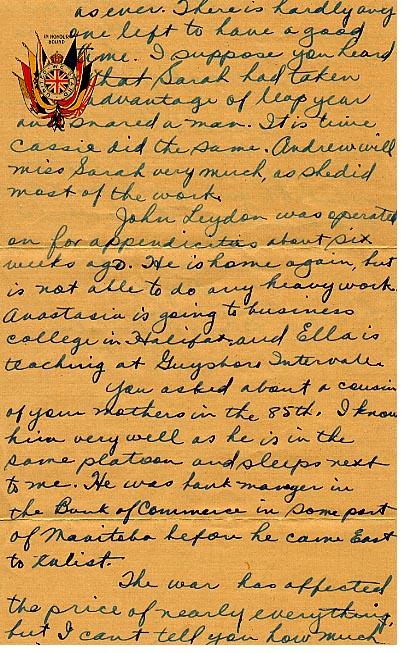 as ever. There is hardly any
one left to have a good
time. I suppose you heard
that Sarah had taken
advantage of leap year
and snared a man. It is time
Cassie did the same. Andrew will
miss Sarah very much, as she did
most of the work.
John Leydon was operated
on for appendicitis about six
weeks ago. He is home again, but
is not able to do any heavy work.
Anastasia is going to business
college in Halifax and Ella is
teaching at Guysboro Intervale.
You asked about a cousin
of your mothers in the 85th. I know
him very well as he is in the
same platoon and sleeps next
to me. He was bank manager in
the Bank of Commerce in some part
of Manitoba before he came East
to enlist.
The war has affected
the price of nearly everything,
but I can't tell you how much
IN HONOUR
BOUND